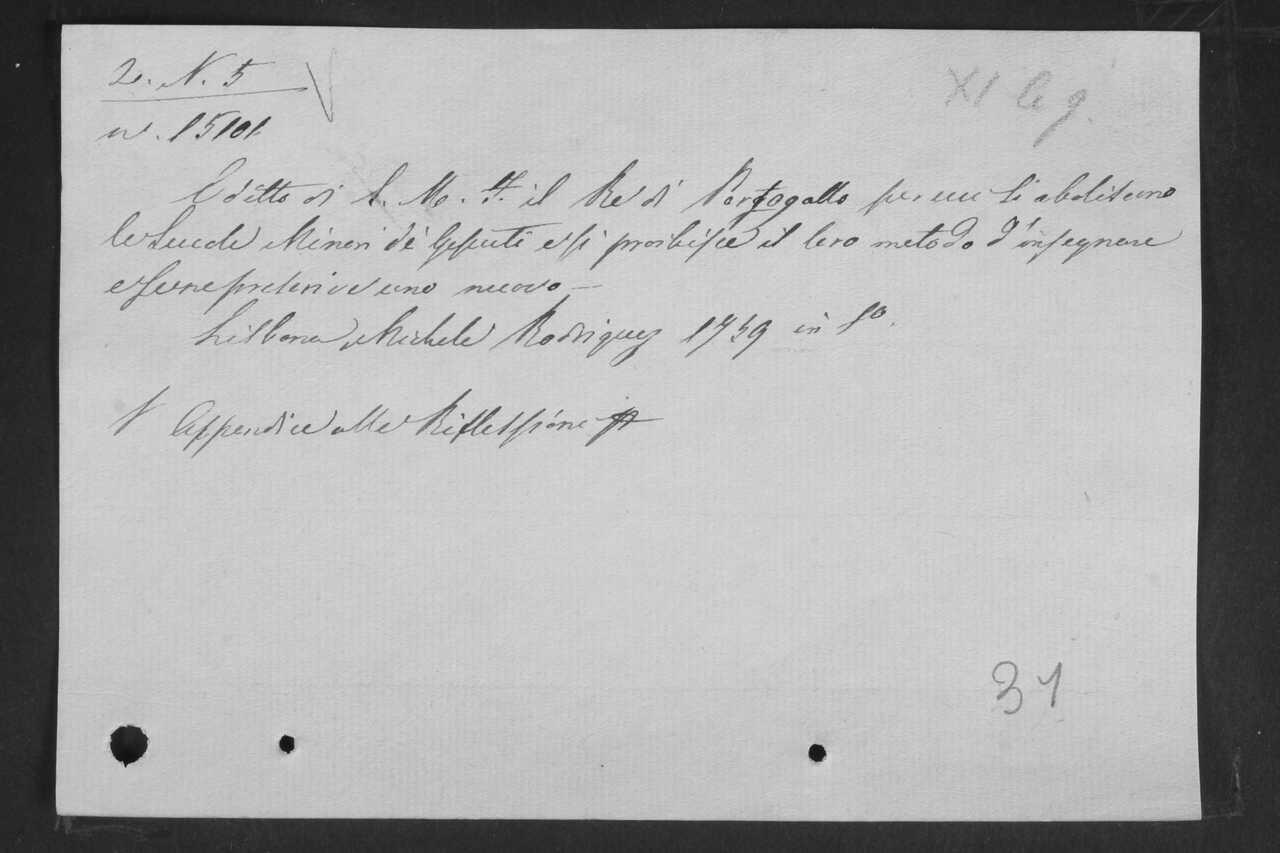 2. N. 5
n. 15101
XI leg.
Editto di S. M. F. il Re di Portogallo per cui si aboliscono
le Scuole Minori de' Gesuiti e si proibisce il loro metodo d'insegnare
e se ne prescrive uno nuovo —
Lisbona, Michele Rodriguez 1759 in 8º.
Appendice alle Riflessioni
31